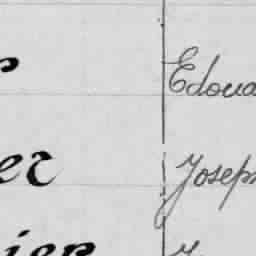 r Edoua
er Joseph
ier